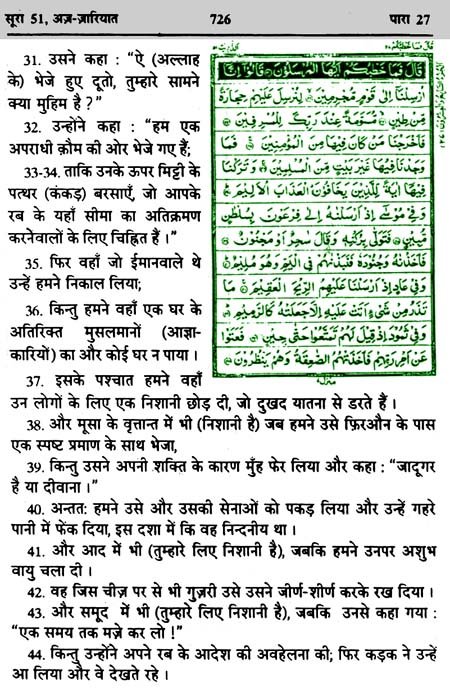 सूरा 51, अज़-ज़ारियात
726
पारा 27
31. उसने कहा : “ऐ (अल्लाह
के) भेजे हुए दूतो, तुम्हारे सामने
क्या मुहिम है ?”
32. उन्होंने कहा : “हम एक
अपराधी क़ौम की ओर भेजे गए हैं;
33-34. ताकि उनके ऊपर मिट्टी के
पत्थर (कंकड़) बरसाएँ, जो आपके
रब के यहाँ सीमा का अतिक्रमण
करनेवालों के लिए चिह्नित हैं ।”
35. फिर वहाँ जो ईमानवाले थे
उन्हें हमने निकाल लिया;
36. किन्तु हमने वहाँ एक घर के
अतिरिक्त मुसलमानों (आज्ञा-
कारियों) का और कोई घर न पाया ।
37. इसके पश्चात हमने वहाँ
قَالَ فَمَا خَطْبُكُمْ أَيُّهَا الْمُرْسَلُونَ قَالُوا إِنَّا
أُرْسِلْنَا إِلَى قَوْمٍ مُجْرِمِينَ لِنُرْسِلَ عَلَيْهِمْ حِجَارَةً
مِنْ طِينٍ مُسَوَّمَةً عِنْدَ رَبِّكَ لِلْمُسْرِفِينَ
فَأَخْرَجْنَا مَنْ كَانَ فِيهَا مِنَ الْمُؤْمِنِينَ فَمَا
وَجَدْنَا فِيهَا غَيْرَ بَيْتٍ مِنَ الْمُسْلِمِينَ وَتَرَكْنَا
فِيهَا آيَةً لِلَّذِينَ يَخَافُونَ الْعَذَابَ الْأَلِيمَ
وَفِي مُوسَى إِذْ أَرْسَلْنَاهُ إِلَى فِرْعَوْنَ بِسُلْطَانٍ
مُبِينٍ فَتَوَلَّى بِرُكْنِهِ وَقَالَ سَاحِرٌ أَوْ مَجْنُونٌ
فَأَخَذْنَاهُ وَجُنُودَهُ فَنَبَذْنَاهُمْ فِي الْيَمِّ وَهُوَ مُلِيمٌ
وَفِي عَادٍ إِذْ أَرْسَلْنَا عَلَيْهِمُ الرِّيحَ الْعَقِيمَ مَا
تَذَرُ مِنْ شَيْءٍ أَتَتْ عَلَيْهِ إِلَّا جَعَلَتْهُ كَالرَّمِيمِ
وَفِي ثَمُودَ إِذْ قِيلَ لَهُمْ تَمَتَّعُوا حَتَّى حِينٍ فَعَتَوْا
عَنْ أَمْرِ رَبِّهِمْ فَأَخَذَتْهُمُ الصَّاعِقَةُ وَهُمْ يَنْظُرُونَ
उन लोगों के लिए एक निशानी छोड़ दी, जो दुखद यातना से डरते हैं ।
38. और मूसा के वृत्तान्त में भी (निशानी है) जब हमने उसे फ़िरऔन के पास
एक स्पष्ट प्रमाण के साथ भेजा,
39. किन्तु उसने अपनी शक्ति के कारण मुँह फेर लिया और कहा : “जादूगर
है या दीवाना ।”
40. अन्ततः हमने उसे और उसकी सेनाओं को पकड़ लिया और उन्हें गहरे
पानी में फेंक दिया, इस दशा में कि वह निन्दनीय था ।
41. और आद में भी (तुम्हारे लिए निशानी है), जबकि हमने उनपर अशुभ
वायु चला दी ।
42. वह जिस चीज़ पर से भी गुज़री उसे उसने जीर्ण-शीर्ण करके रख दिया ।
43. और समूद में भी (तुम्हारे लिए निशानी है), जबकि उनसे कहा गया :
“एक समय तक मज़े कर लो !”
44. किन्तु उन्होंने अपने रब के आदेश की अवहेलना की; फिर कड़क ने उन्हें
आ लिया और वे देखते रहे ।